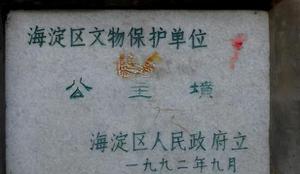 海淀区文物保护单位
公主墳
海淀区人民政府立
一九九二年九月